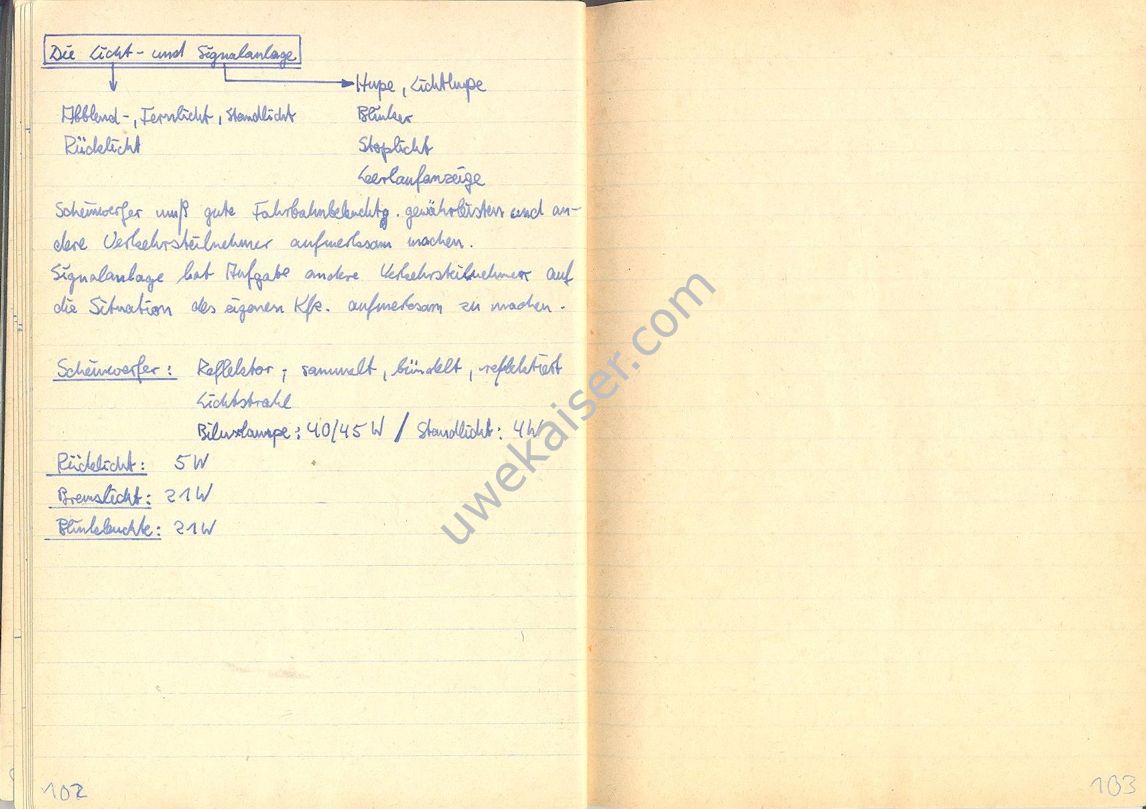 Die Licht- und Signalanlage
Hupe, Lichthupe
Abblend-, Fernlicht, Standlicht
Blinker
Rücklicht
Stoplicht
Leerlaufanzeige
Scheinwerfer muß gute Fahrbahnbeleuchtg. gewährleisten und an-
dere Verkehrsteilnehmer aufmerksam machen.
Signalanlage hat Aufgabe andere Verkehrsteilnehmer auf
die Situation des eigenen Kfz. aufmerksam zu machen.
Scheinwerfer: Reflektor; sammelt, bündelt, reflektiert
Lichtstrahl
Biluxlampe: 40/45 W / Standlicht: 4W
Rücklicht: 5W
Bremslicht: 21W
Blinkleuchte: 21W
102
103
uwekaiser.com